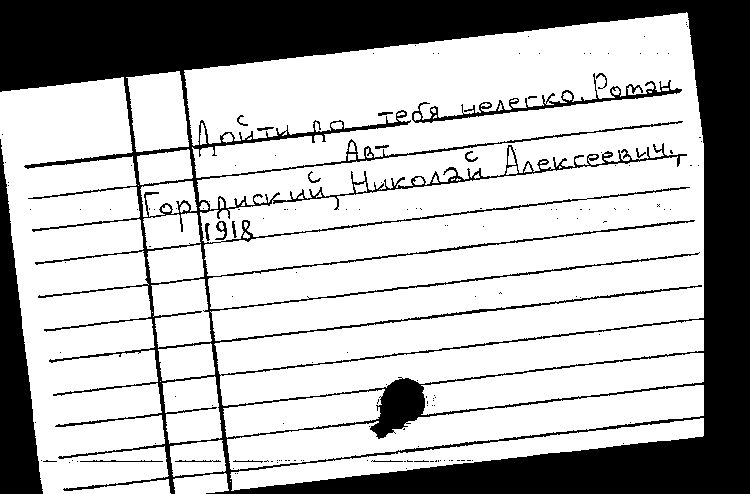 Дойти до тебя нелегко. Роман.
Авт.
Городиский, Николай Алексеевич,
1918